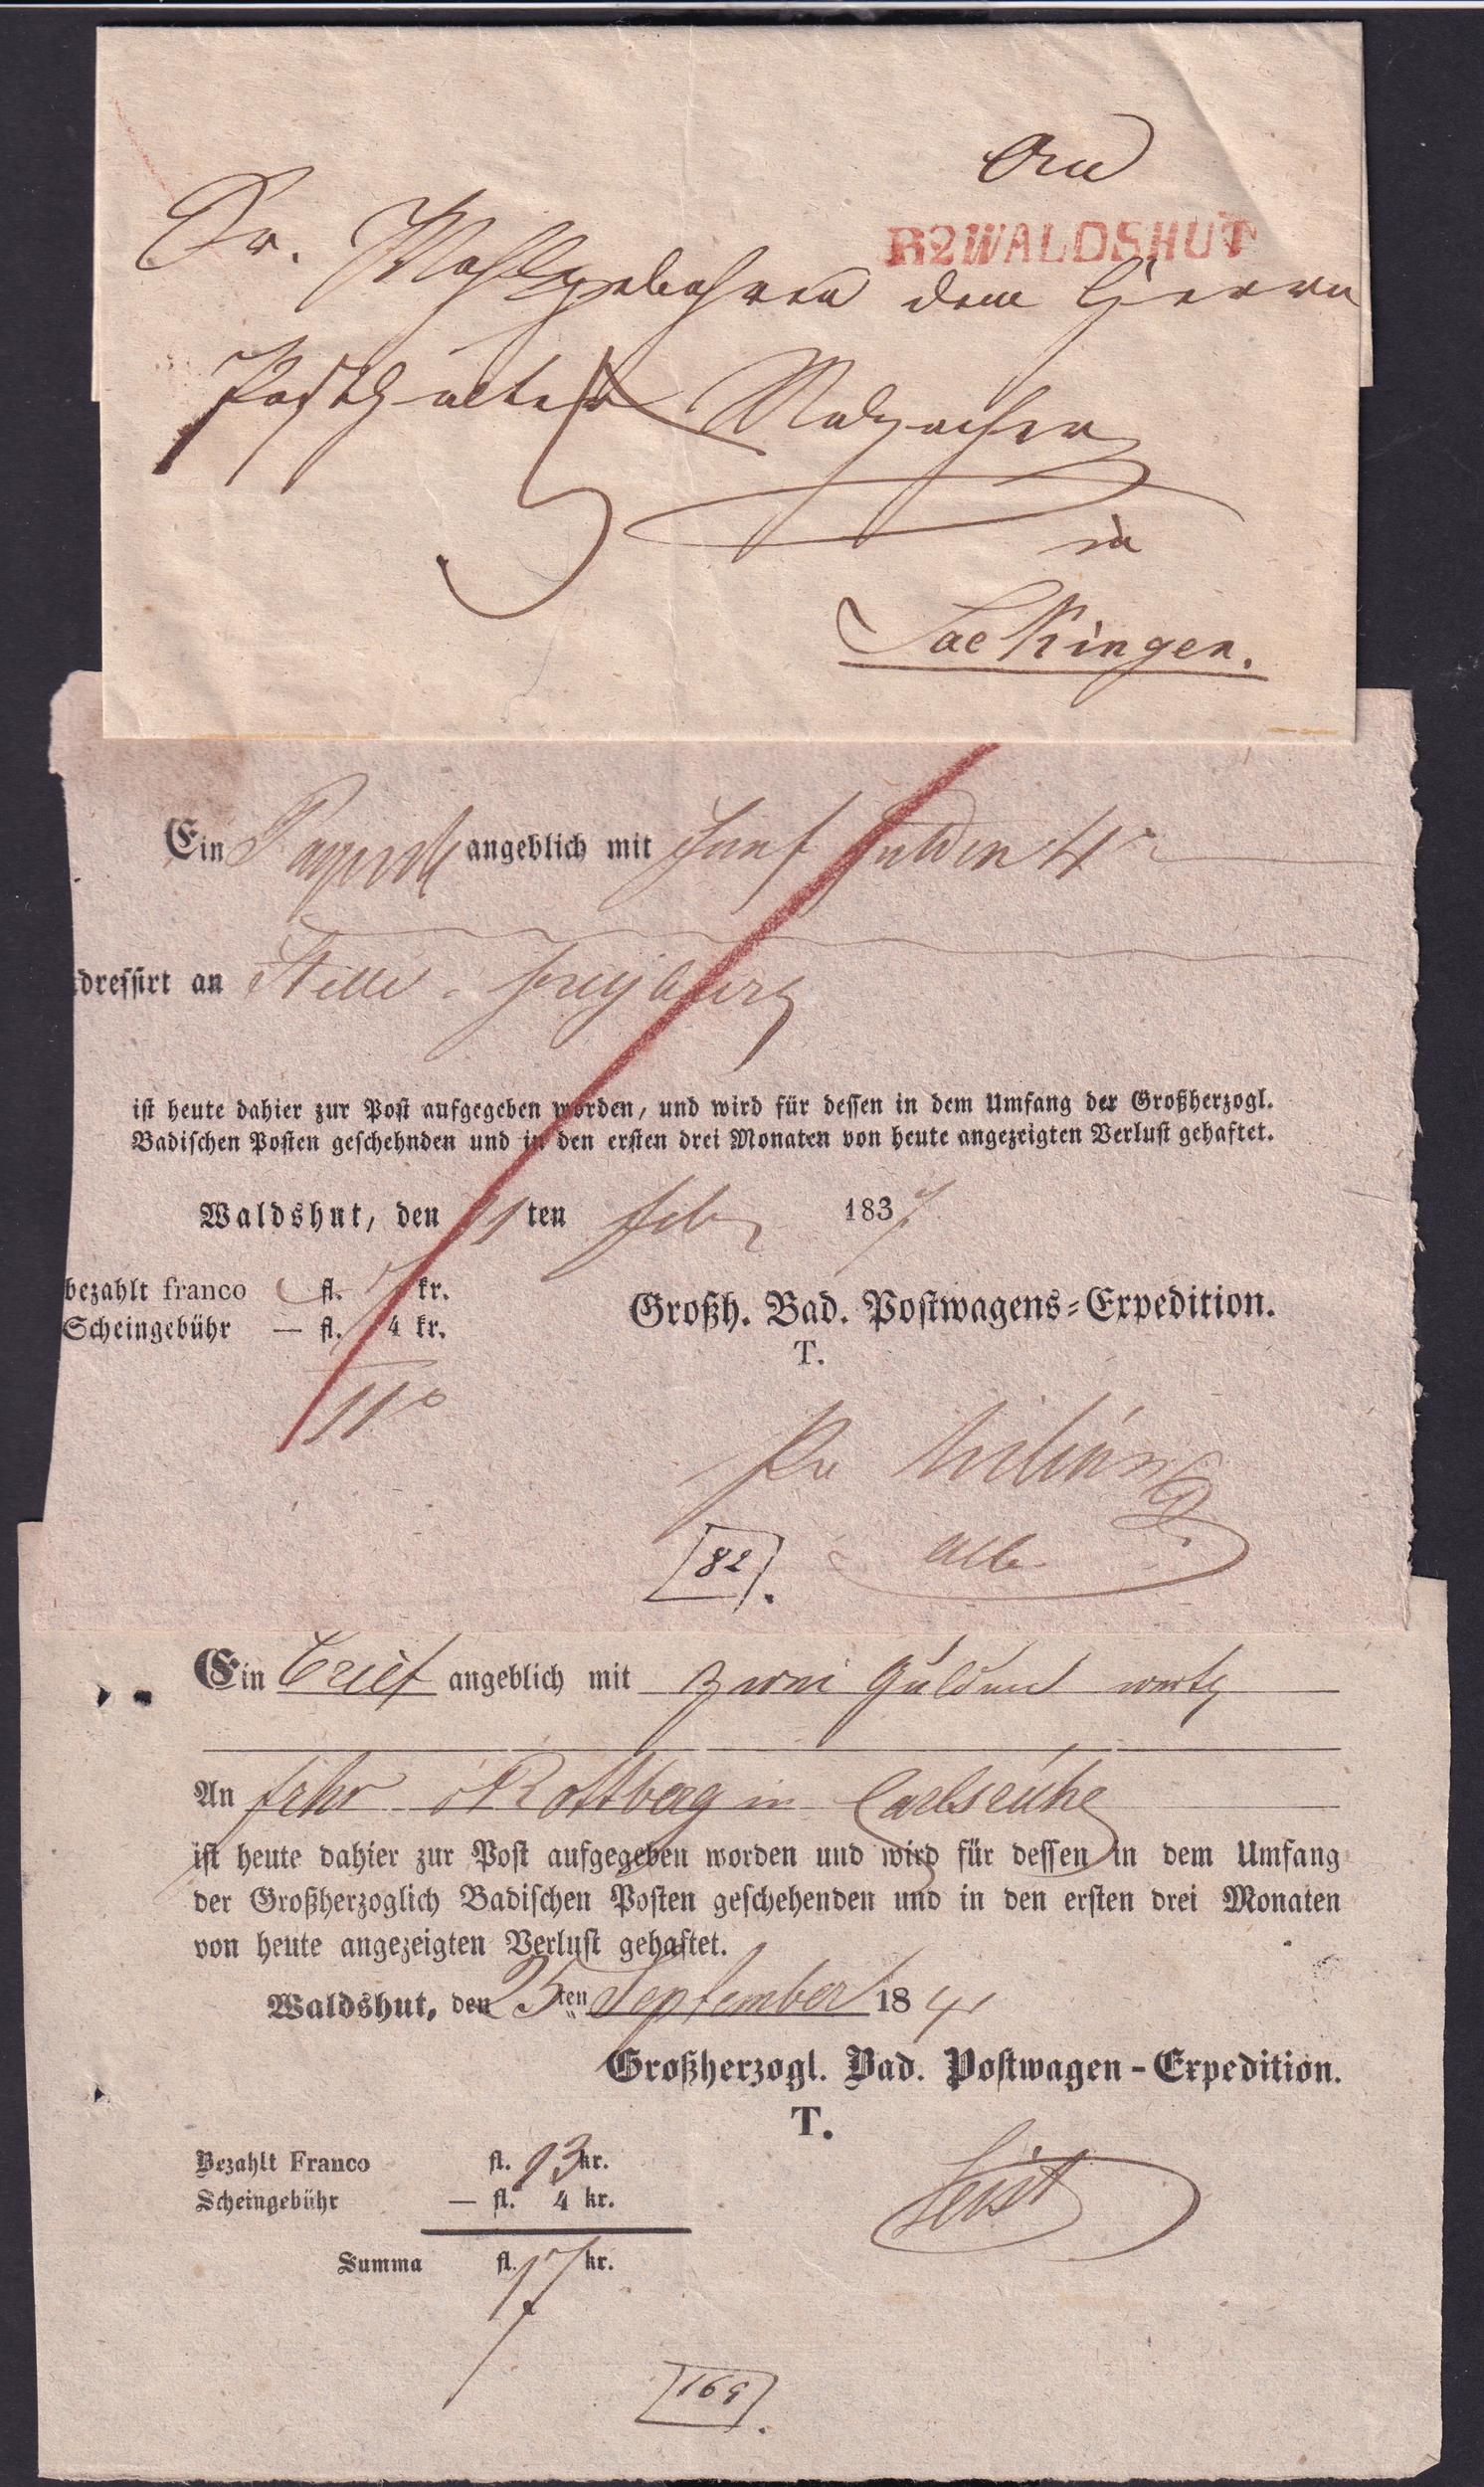 An
R2WALDSHUT
Sr. Wohlgebohren dem Herrn
Posthalter Malzacher
in
Saekingen.
Ein angeblich mit fünf Gulden 4
adressirt an Freyburg
ist heute dahier zur Post aufgegeben worden, und wird für dessen in dem Umfang der Großherzogl.
Badischen Posten geschehnden und in den ersten drei Monaten von heute angezeigten Verlust gehaftet.
Waldshut, den ten Feb. 1837
bezahlt franco fl. 7 kr.
Scheingebühr — fl. 4 kr.
11
Großh. Bad. Postwagens-Expedition.
T.
82
Ein Brief angeblich mit zwei Gulden werth
An Frhr v Rottberg in Carlsruhe
ist heute dahier zur Post aufgegeben worden und wird für dessen in dem Umfang
der Großherzoglich Badischen Posten geschehenden und in den ersten drei Monaten
von heute angezeigten Verlust gehaftet.
Waldshut, den 25ten September 1841
Großherzogl. Bad. Postwagen-Expedition.
T.
Bezahlt Franco fl. 13 kr.
Scheingebühr — fl. 4 kr.
Leist
Summa fl. 17 kr.
169